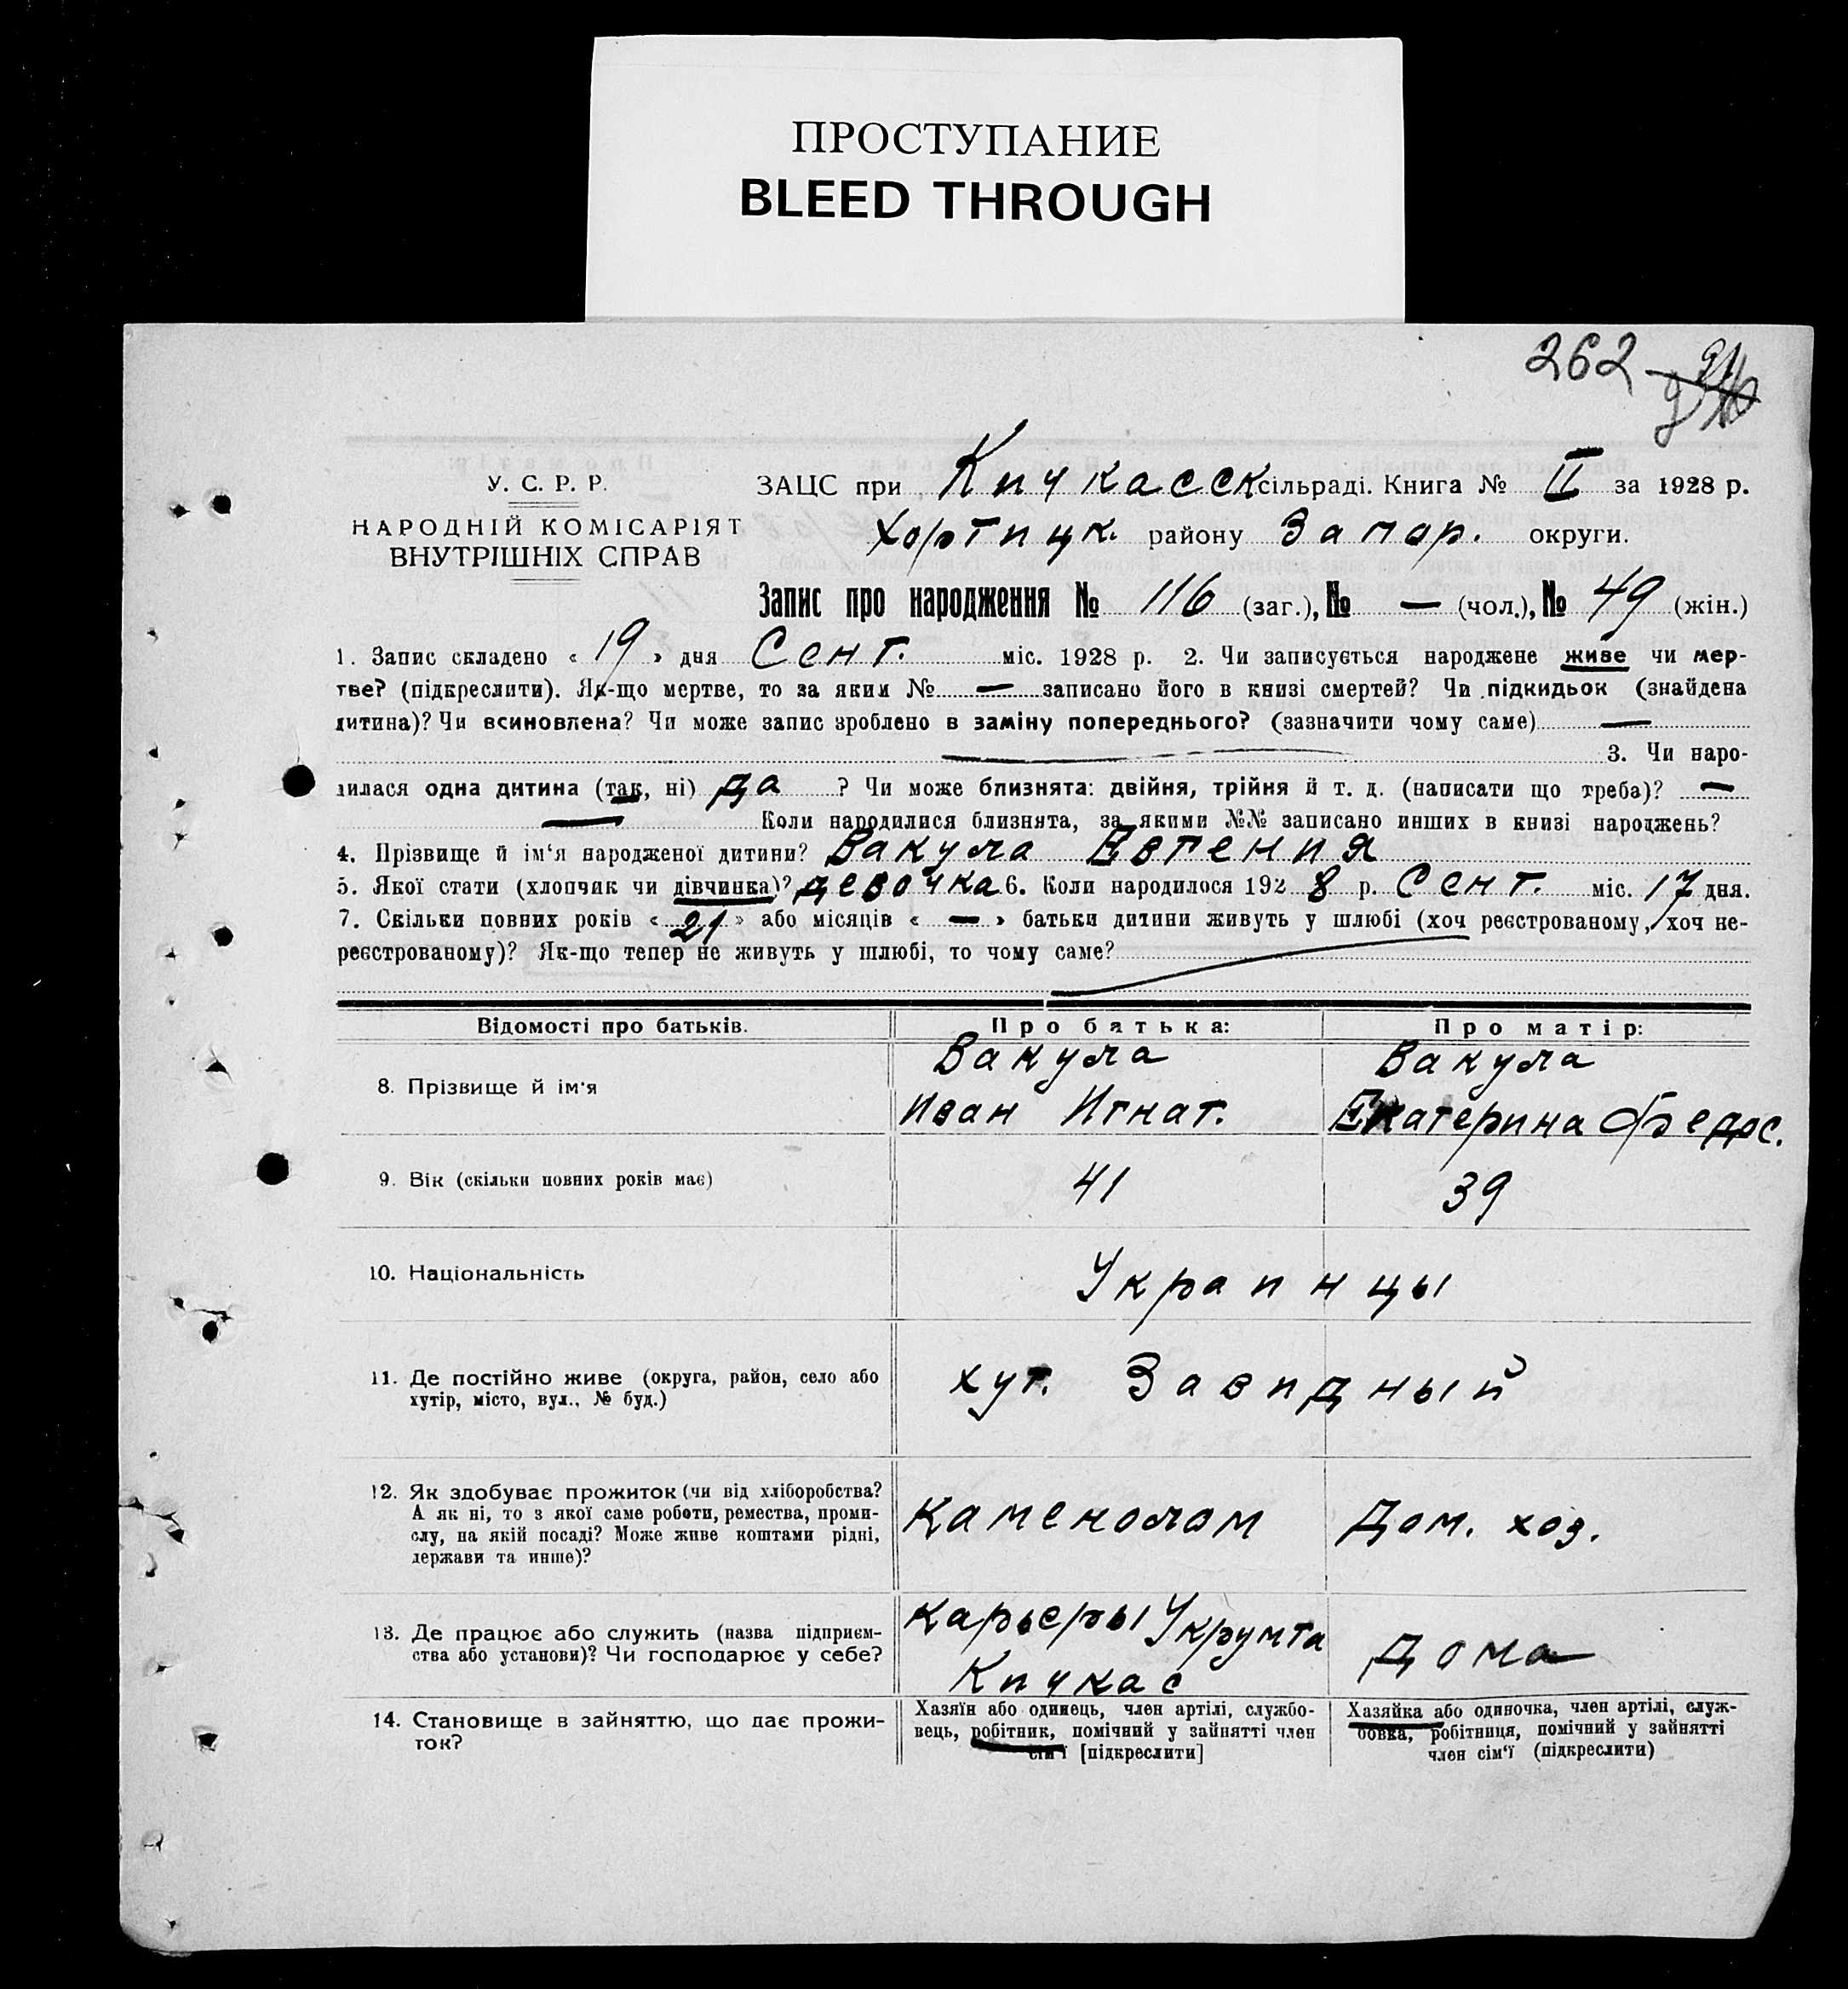 ПРОСТУПАНИЕ
BLEED THROUGH
262
У. С. Р. Р.
НАРОДНІЙ КОМІСАРІЯТ
ВНУТРІШНІХ СПРАВ
ЗАЦС при Кичкасск сільраді. Книга № II за 1928 р.
Хортицк. району Запор. округи.
Запис про народження № 116 (заг.), № — (чол.), № 49 (жін.)
1. Запис складено « 19 » дня Сент. міс. 1928 р. 2. Чи записується народжене живе чи мер-
тве? (підкреслити). Як-що мертве, то за яким № — записано його в книзі смертей? Чи підкидьок (знайдена
дитина)? Чи всиновлена? Чи може запис зроблено в заміну попереднього? (зазначити чому саме) —
3. Чи наро-
дилася одна дитина (так, ні) да ? Чи може близнята: двійня, трійня й т. д. (написати що треба)? —
— Коли народилися близнята, за якими №№ записано инших в книзі народжень?
4. Прізвище й ім‘я народженої дитини? Вакула Евгения
5. Якої стати (хлопчик чи дівчинка)? девочка 6. Коли народилося 192 8 р. Сент. міс. 17 дня.
7. Скільки повних років « 21 » або місяців « — » батьки дитини живуть у шлюбі (хоч реєстрованому, хоч не-
реєстрованому)? Як-що тепер не живуть у шлюбі, то чому саме?
Відомості про батьків.
Про батька:
Про матір:
8. Прізвище й ім‘я
Вакула
Иван Игнат.
Вакула
Екатерина Федос.
9. Вік (скільки повних років має)
41
39
10. Національність
Украинцы
11. Де постійно живе (округа, район, село або
хутір, місто, вул., № буд.)
хут. Завидный
12. Як здобуває прожиток (чи від хліборобства?
А як ні, то з якої саме роботи, ремества, проми-
слу, на якій посаді? Може живе коштами рідні,
держави та инше)?
Каменолом
Дом. хоз.
13. Де працює або служить (назва підприєм-
ства або установи)? Чи господарює у себе?
Карьеры
Кичкас
Дома
14. Становище в зайняттю, що дає прожи-
ток?
Хазяїн або одинець, член артілі, службо-
вець, робітник, помічний у зайнятті член
сім‘ї [підкреслити]
Хазяйка або одиночка, член артілі, служ-
бовка, робітниця, помічний у зайнятті
член сім‘ї (підкреслити)